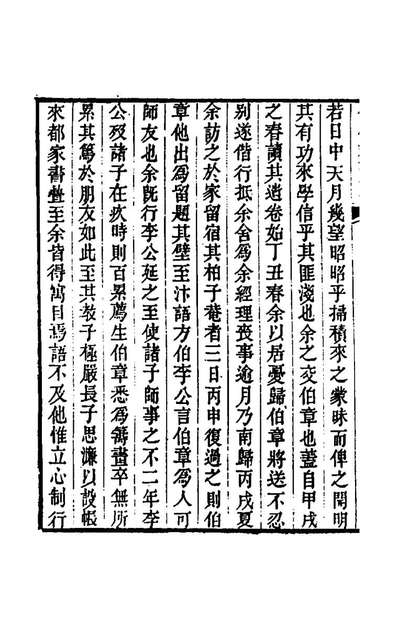 若日中天月幾望昭昭乎掃積來之蒙昧而俾之開明
其有功來學信乎其匪淺也余之交伯章也蓋自甲戌
之春讀其遺卷始丁丑春余以居憂歸伯章將送不忍
別遂偕行抵余舍爲余經理喪事逾月乃南歸丙戌夏
余訪之於家留宿其柏子菴者三日丙申復過之則伯
章他出爲留題其壁至汴語方伯李公言伯章爲人可
師友也余旣行李公延之至使諸子師事之不二年李
公歿諸子在疚時則百累薦生伯章悉爲籌畫卒無所
累其篤於朋友如此至其敎子極嚴長子思濂以設帳
來都家書疊至余皆得寓目焉語不及他惟立心制行